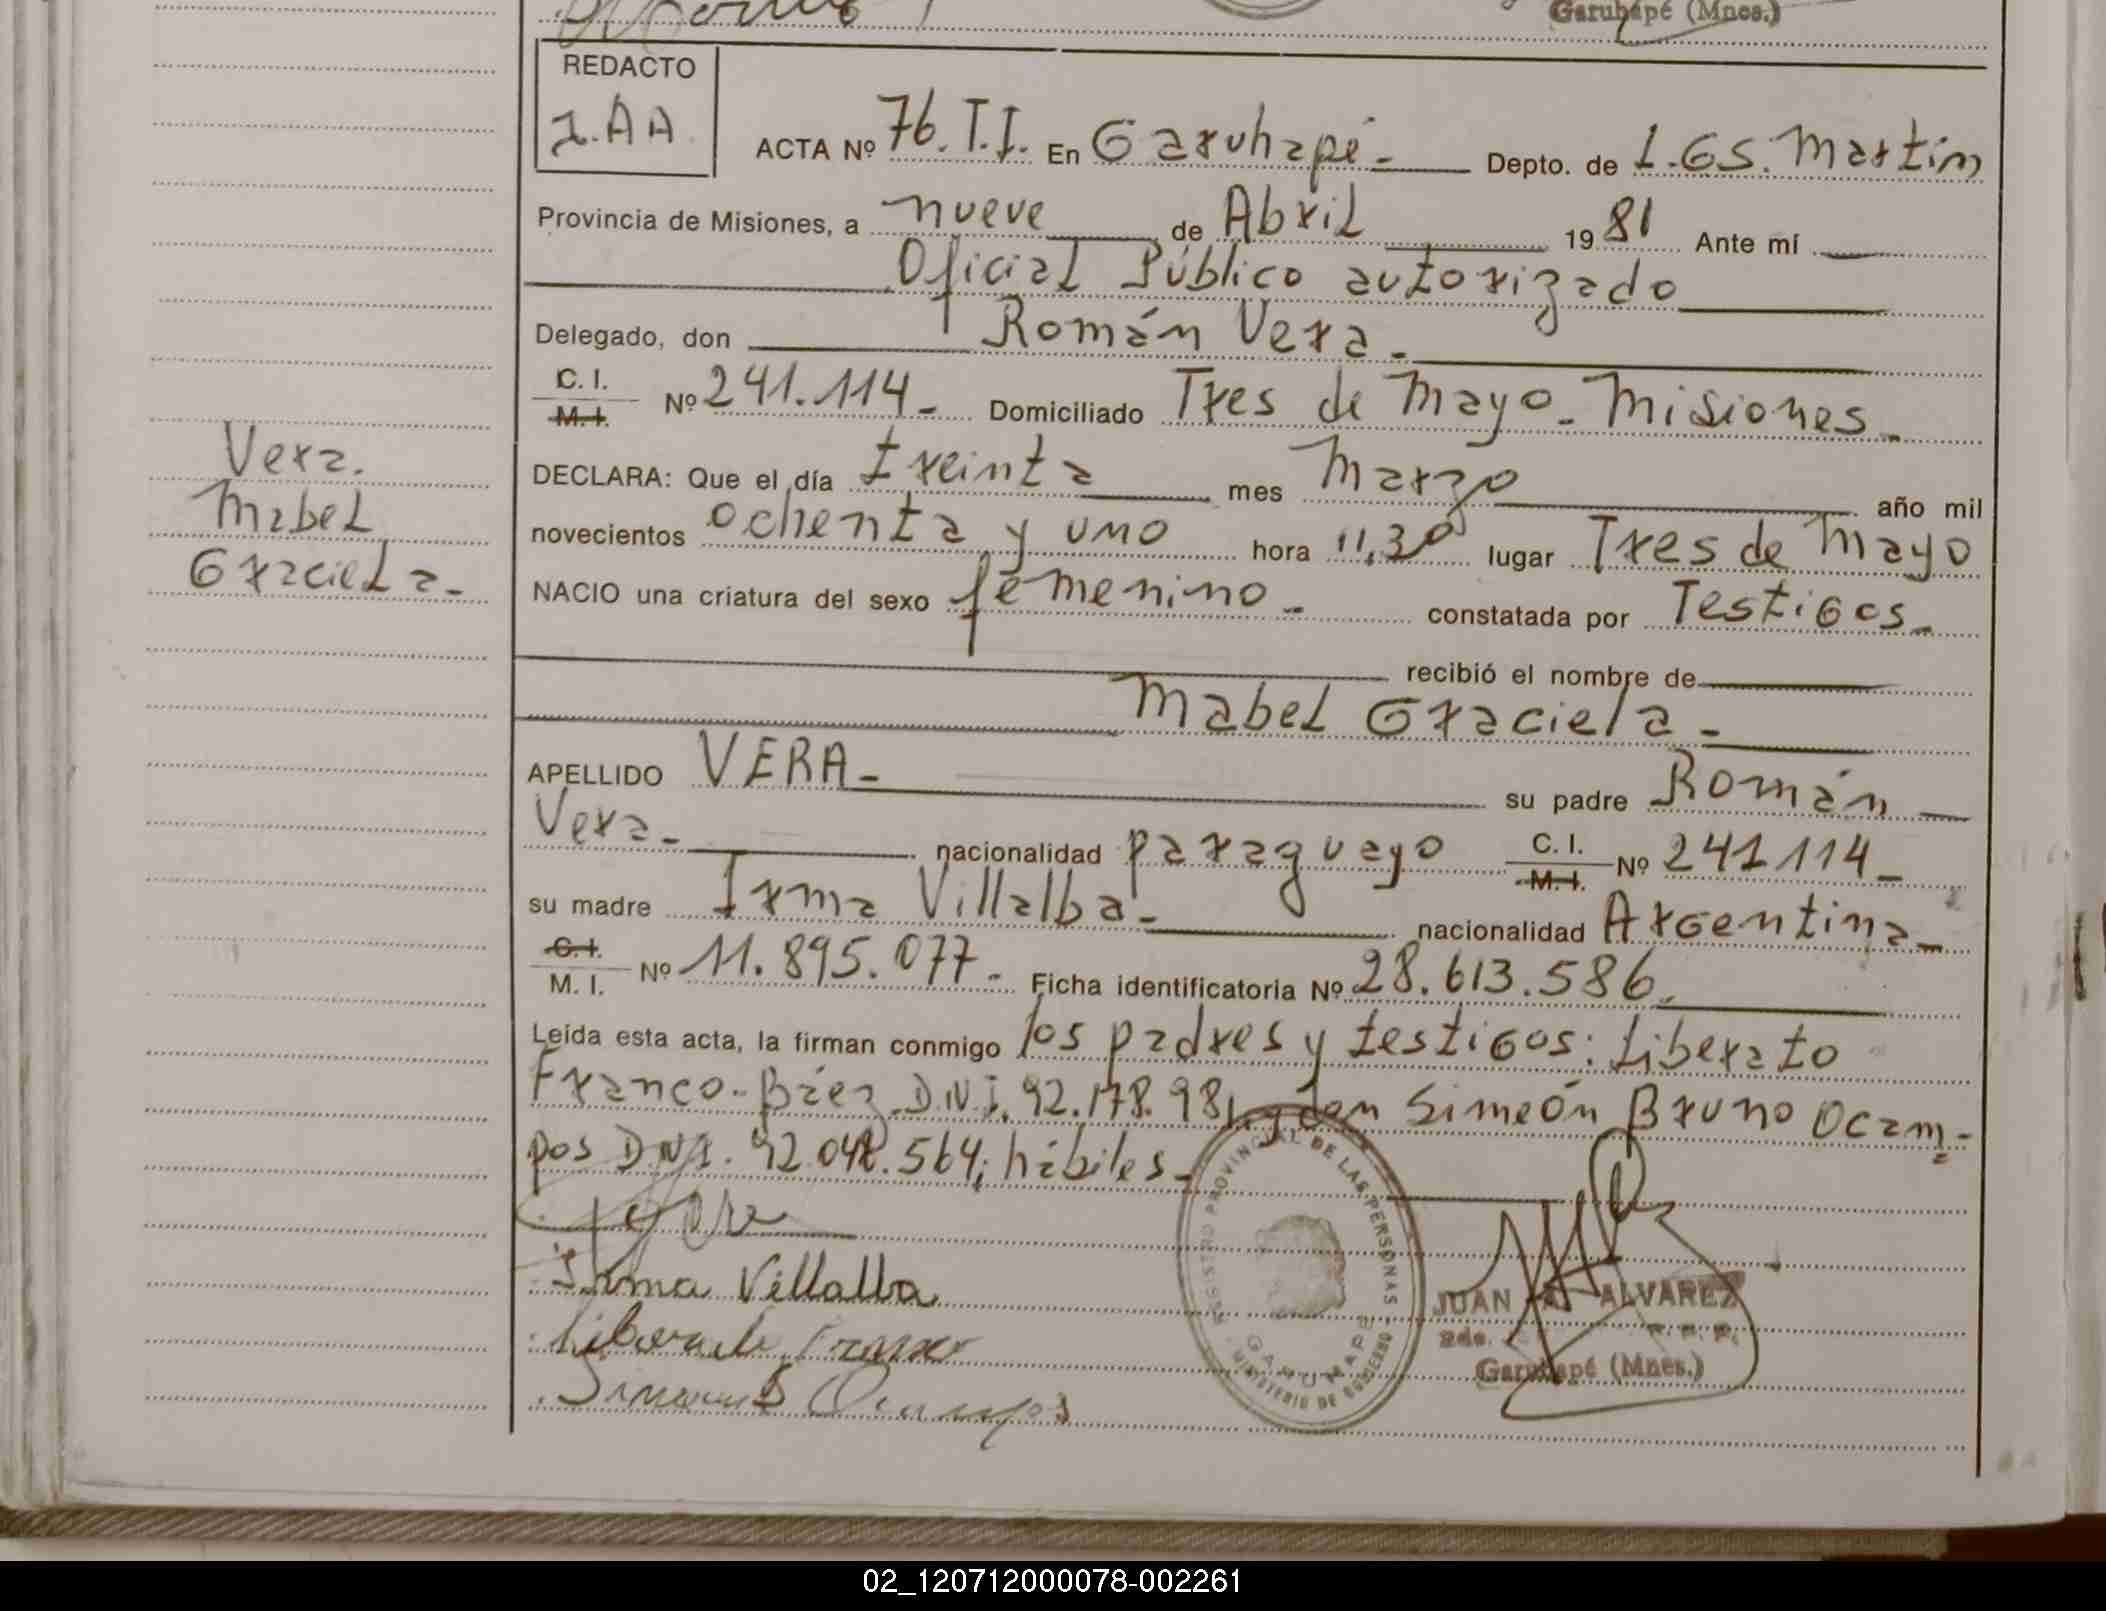 Garuhapé (Mnes.)
REDACTO
J.AA
ACTA Nº 76.T.I. En Garuhapé - Depto. de L.GS. Martín
Provincia de Misiones, a nueve de Abril 1981 Ante mí
Oficial Público autorizado
Delegado, don Román Vera -
C. I. M. I. Nº 241.114 - Domiciliado Tres de Mayo - Misiones -
DECLARA: Que el día treinta mes Marzo año mil
novecientos ochenta y uno hora 11,30 lugar Tres de Mayo
NACIO una criatura del sexo femenino - constatada por Testigos -
recibió el nombre de
Mabel Graciela -
APELLIDO VERA - su padre Román
Vera - nacionalidad paraguayo C. I. M. I. Nº 241114 -
su madre Irma Villalba - nacionalidad Argentina -
C. I. M. I. Nº 11.895.077 - Ficha identificatoria Nº 28.613.586.
Leída esta acta, la firman conmigo los padres y testigos: Liberato
Franco-Báez D.N.I. 92.178.981, y don Simeón Bruno Ocam-
pos DNI. 92.048.564; hábiles -
Vera.
Mabel
Graciela -
Irma Villalba
Liberato Franco
Simeon B Ocampos
REGISTRO PROVINCIAL DE LAS PERSONAS
GARUHAPE
MINISTERIO DE GOBIERNO
JUAN A. ALVAREZ
Garuhapé (Mnes.)
02_120712000078-002261